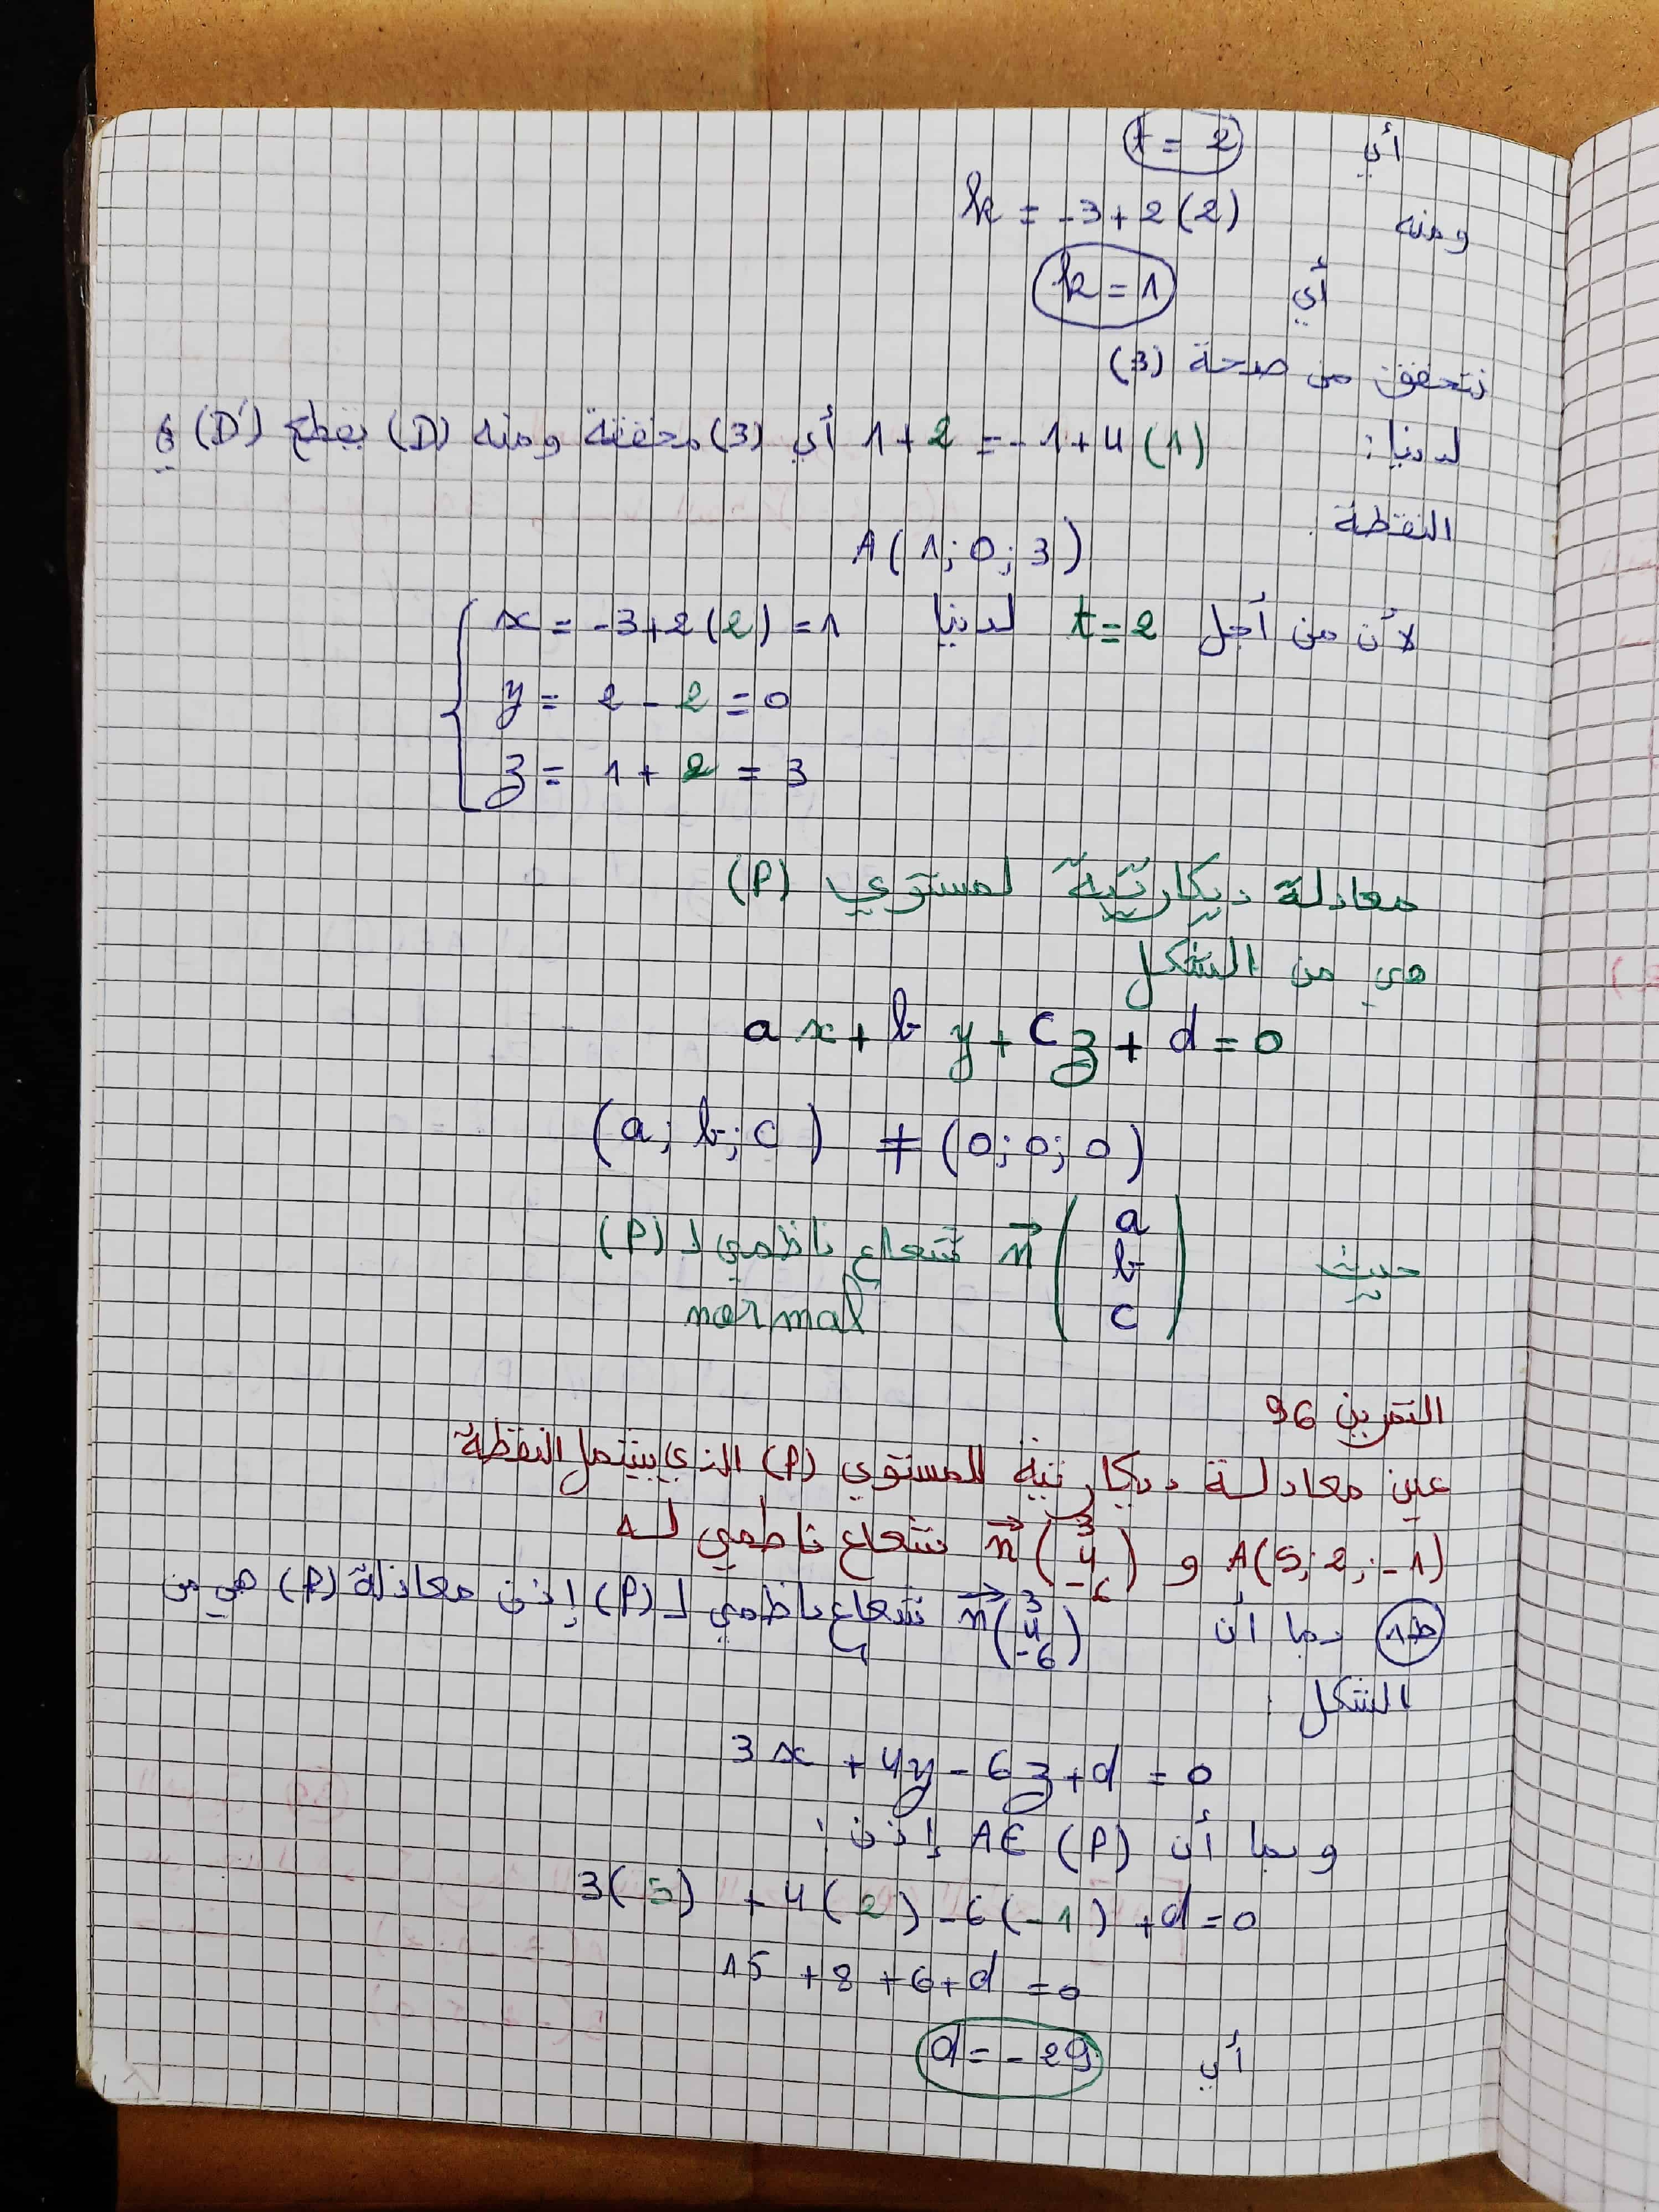 أي t = 2
ومنه k = -3 + 2(2)
أي k = 1
نتحقق من صحة (3)
لدينا: 1 + 2 = -1 + 4(1) أي (3) محققة ومنه (D) يقطع (D') في
النقطة
A(1; 0; 3)
لأن من أجل t = 2 لدينا
x = -3 + 2(2) = 1
y = 2 - 2 = 0
z = 1 + 2 = 3
معادلة ديكارتية لمستوي (P)
هي من الشكل
ax + by + cz + d = 0
(a; b; c) ≠ (0; 0; 0)
حيث n⃗ (a b c) شعاع ناظمي لـ (P)
normal
التمرين 96
عين معادلة ديكارتية للمستوي (P) الذي يشمل النقطة
A(5; 2; -1) و n⃗ (3 4 -6) شعاع ناظمي له
ط1 بما أن n⃗ (3 4 -6) شعاع ناظمي لـ (P) إذن معادلة (P) هي من
الشكل
3x + 4y - 6z + d = 0
وبما أن A ∈ (P) إذن:
3(5) + 4(2) - 6(-1) + d = 0
15 + 8 + 6 + d = 0
أي d = -29